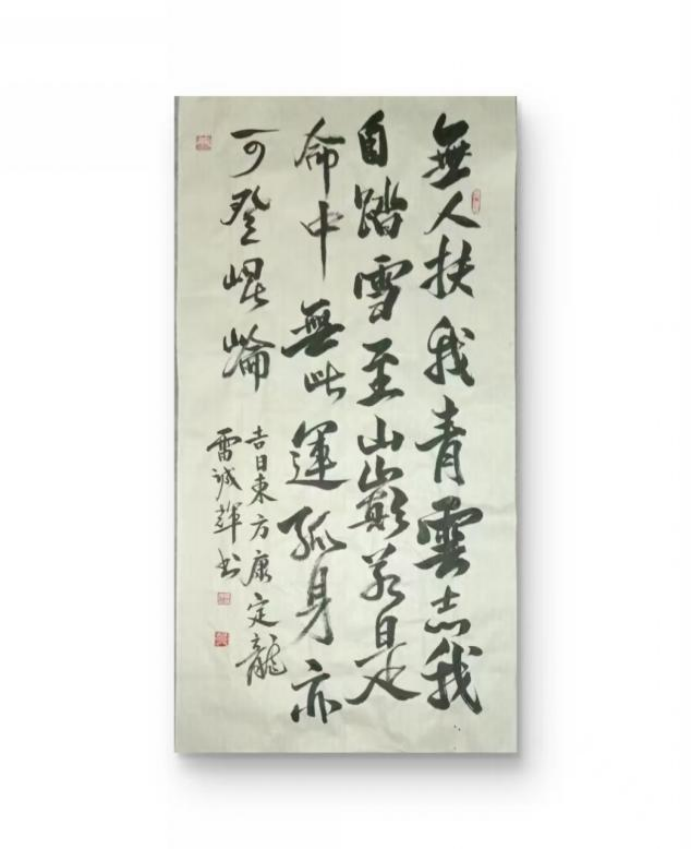 無人扶我青雲志我
自踏雪至山巔若是
命中無此運孤身亦
可登崐崘
吉日東方康定龍
雷誠輝书